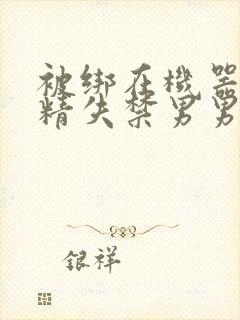 被绑在机器
精失禁男男
银祥